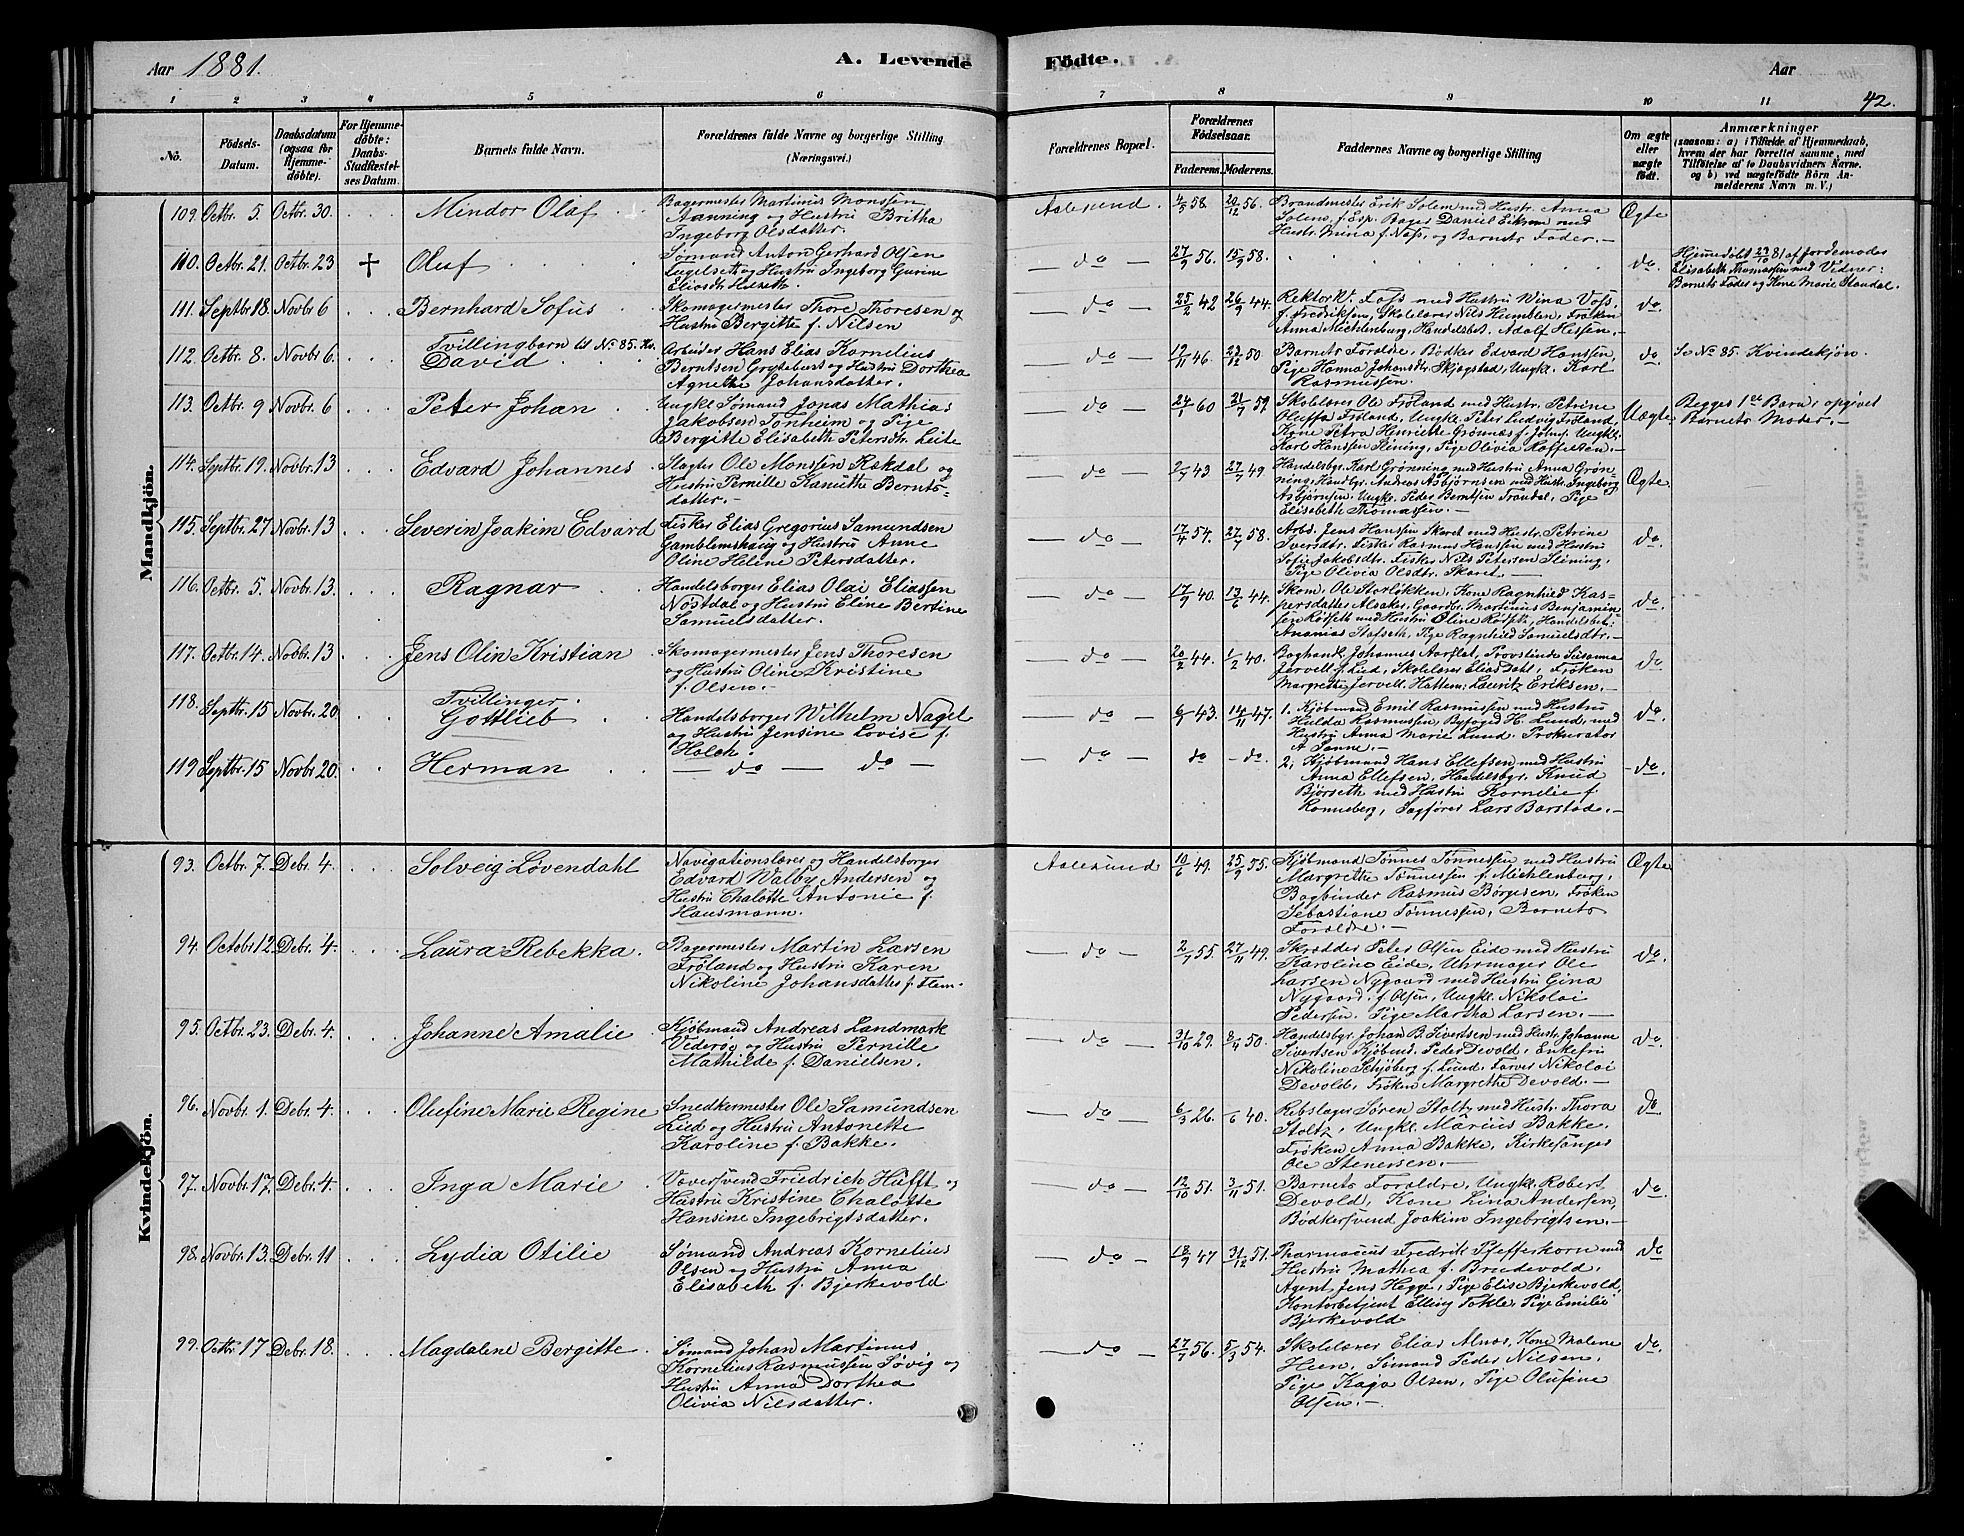 Aar 1881. A. Levende Födte. Aar
1 2 3 4 5 6 7 8 9 10 11 42.
No. Födsels-Datum. Daabsdatum (ogsaa for Hjemme-döbte). For Hjemme-döbte: Daabs-Stadfæstel-ses Datum. Barnets fulde Navn. Forældrenes fulde Navne og borgerlige Stilling (Næringsvei.) Forældrenes Bopæl. Forældrenes Födselsaar. Faderens. Moderens. Faddernes Navne og borgerlige Stilling Om ægte eller uægte födt. Anmærkninger
(saasom: a) i Tilfælde af Hjemmedaab, hvem der har forrettet samme, med Tilföielse af to Daabsvidners Navne. og b) ved uægtefödte Börn An-melderens Navn m. V.)
Mandkjön.
109. Octbr. 5. Octbr. 30. Mindor Olaf
Bagermester Martinus Monssen
Aanning og Hustru Britha
Ingeborg Olsdatter.
Aalesund. 4/5 58. 20/12 56.
Brandmester Erik Solem med Hustr. Anna
Solem, f. Esp. Bager Daniel Eikrem med
Hustr. Mina f. Næs, og Barnets Fader.
Ægte
110. Octbr. 21. Octbr. 23 † Olaf
Sømand Anton Gerhard Olsen
og Hustru Ingeborg Gurine
do 27/9 56. 15/9 58. do.
Hjemmedøbt 22/10 81 af Jordemoder
Elisabeth Thomassen med Vidner:
Barnets Fader og Kone Marie Standal.
111. Septbr 18. Novbr 6 Bernhard Sofus
Skomagermester Thore Thoresen og
Hustru Bergitte f. Nilsen
do 25/2 42 26/9 44.
Rektor K. Foss med Hustru Wina Voss
f. Fredriksen, Skolelærer Nils Humblen, Frøken
Anna Michlenburg, Handelsbet. Adolf Hessen.
do.
112. Octbr. 8. Novbr 6. Tvillingbarn til No. 85. Kv.
David
Arbeider Hans Elias Kornelius
Berntsen Grytebust og Hustru Dorthea
Agnethe Johansdatter.
do 19/11 46. 23/12 50.
Barnets Forældre, Bødker Edvard Hanssen,
Pige Hanna Johansdtr. Skjogstad, Ungkl. Karl
Rasmussen.
do. Se No 85. Kvindekjøn.
113. Octbr. 9 Novbr. 6 Peter Johan
Ungkl Sømand Jonas Mathias
Jakobsen Tonheim og Pige
Bergitte Elisabeth Petersdtr. Leite
do 24/1 60 21/7 59.
Skolelærer Ole Frøland med Hustr. Petrine
Oluffa Frøland, Ungkl. Peter Ludvig Frøland,
Kone Petra Henriette Grønnæs f. Ungkl.
Karl Hanssen Slening, Pige Olivia Koffelsen.
Uægte Begges 1ste Barn opgivet
Barnets Moder.
114. Septbr. 19. Novbr. 13 Edvard Johannes
Slagter Ole Monssen Rækdal og
Hustru Pernille Kanutte Bernts-
datter.
do 2/7 43 27/7 49
Handelsbgr. Karl Grønning med Hustru Anna Grøn-
ning, Handbgr. Andreas Asbjørnsen med Hustr. Ingeborg
Asbjørnsen, Ungkl. Peder Berntsen Frøndal, Pige
Elisabeth Thomassen.
Ægte.
115. Septbr. 27 Novbr. 13 Severin Joakim Edvard
Fisker Elias Gregorius Samundsen
Gamblemshaug og Hustru Anne
Oline Heline Petersdatter.
do 17/4 54. 27/7 58.
Arbd. Jens Hanssen Skaret med Hustr. Petrine
Iversdtr. Fisker Rasmus Hanssen med Hustru
Sofie Jakobsdtr. Fisker Nils Petersen Slening,
Pige Olivia Olsdtr. Skaret.
do.
116. Octbr. 5. Novbr. 13. Ragnar
Handelsborger Elias Olai Eliassen
Nøstdal og Hustru Eline Bertine
Samuelsdatter.
do 17/9 40. 13/6 44.
Skom. Ole Storløkken, Kone Ragnhild Kas-
persdatter Alsaker, Gaardbr. Martinus Benjamin
sen Rødseth med Hustru Oline Rødseth, Handelsbet:
Ananias Stafseth, Pige Ragnhild Samuelsdtr.
do.
117. Octbr. 14. Novbr. 13 Jens Olin Kristian
Skomagermester Jens Thoresen
og Hustru Oline Kristine
f. Olsen.
do 20/2 44. 1/2 40.
Boghandl. Johannes Aarflot, Provstinde Susanna
Jervell f. Lied, Skolelærer Elias Dahl, Frøken
Margrethe Jervell, Hattem. Lauritz Eriksen.
do
118. Septbr. 15 Novbr. 20. Tvillinger
Gottlieb
Handelsborger Wilhelm Nagel
og Hustru Jensine Lovise f.
Holch.
do 6/1 43. 14/11 47.
1. Kjøbmand Emil Rasmussen med Hustru
Hulda Rasmussen, Byfoged H. Lund, med
Hustru Anna Marie Lund. Prokurator
A Sanne.
do.
119 Septbr. 15 Novbr. 20. Herman
do do
do do do.
2. Kjøbmand Hans Ellefsen med Hustru
Anna Ellefsen, Handelsbgr. Knud
Bjørseth med Hustru Kornelie f.
Ronneberg, Sagfører Lars Barstad.
do.
Kvindekjön.
93. Octbr. 7. Debr. 4. Solveig Løvendahl
Navigationslærer og Handelsborger
Edvard Walby Andersen og
Hustru Chalotte Antonie f.
Hausmann.
Aalesund 10/6 49. 25/9 55.
Kjøbmand Tønnes Tønnessen med Hustru
Margrethe Tønnessen f. Michlenburg,
Bogbinder Rasmus Børgesen, Frøken
Sebastiane Tønnessen, Barnets
Forældre.
Ægte
94. Octobr 12. Debr. 4. Laura Rebekka.
Bagermester Martin Larsen
Frøland og Hustru Karen
Nikoline Johansdatter f. Flem.
do 2/7 55. 27/11 49.
Skrædder Peter Olsen Eide med Hustru
Karoline Eide, Uhrmager Ole
Larsen Nygaard med Hustru Gina
Nygaard f. Olsen, Ungkl. Nikolai
Pedersen. Pige Martha Larsen.
do.
95. Octbr. 23. Debr. 4. Johanne Amalie
Kjøbmand Andreas Landmark
Vederøg og Hustru Pernille
Mathilde f. Danielsen.
do 31/10 29. 8/4 50.
Handelsbgr. Johan B. Sivertsen med Hustr. Johanne
Sivertsen Kjøbmd. Peder Devold, Enkefru
Nikoline Schjøberg f. Lund, Farver Nikolai
Devold, Frøken Margrethe Devold.
do.
96. Novbr. 1. Debr. 4. Olufine Marie Regine
Snedkermester Ole Samundsen
Lied og Hustru Antonette
Karoline f. Bakke.
do 6/3 26. /6 40.
Rebslager Søren Stoltz med Hustr. Thora
Stoltz, Ungkl. Marius Bakke,
Frøken Anna Bakke, Kirkesanger
Ole Stenersen.
do
97. Novbr. 17. Debr. 4. Inga Marie
Væversvend Friedrich Hüfft og
Hustru Kristine Chalotte
Hansine Ingebrigtsdatter.
do 12/10 51. 3/11 51.
Barnets Forældre, Ungkl. Robert
Devold, Kone Lina Andersen,
Bødkersvend Joakim Ingebrigtsen.
do.
98. Novbr. 13. Debr. 11 Lydia Otilie
Sømand Andreas Kornelius
Olsen og Hustru Anna
Elisabeth f. Bjerkevold
do 18/9 47 31/12 51.
Pharmaceut Fredrik Pfefferkorn med
Hustru Mathea f. Brudevold,
Agent Jens Hegge, Pige Elise Bjerkevold,
Kontorbetjent Elling Tokle, Pige Emilie
Bjerkevold
do
99. Octbr. 17 Debr. 18. Magdalene Bergitte
Sømand Johan Martinus
Kornelius Rasmussen Søvig og
Hustru Anna Dorthea
Olivia Nilsdatter.
do 27/7 56. 5/3 54.
Skolelærer Elias Alnæs, Kone Malene
Heen, Sømand Peder Nilsen,
Pige Kaja Olsen, Pige Olufine
Olsen.
do.